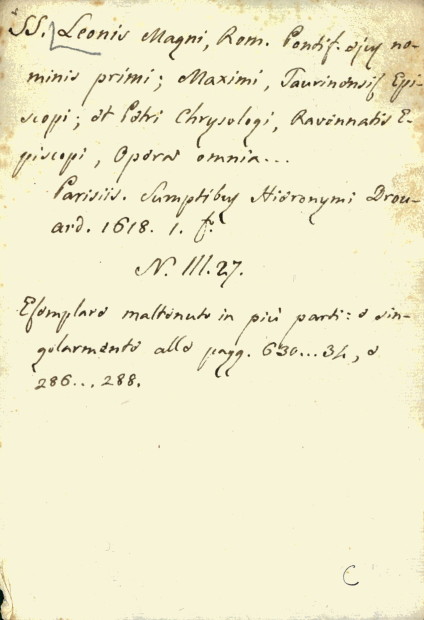 SS. Leonis Magni, Rom. Pontif. ejus no-
minis primi; Maximi, Taurinensis Epi-
scopi; et Petri Chrysologi, Ravennatis E-
piscopi, Opera omnia...
Parisiis. Sumptibus Hieronymi Drou-
ard. 1618. 1. f.º
N. III.27.
Esemplare maltenuto in più parti: e sin-
golarmente alle pagg. 630...34, e
286...288.
C